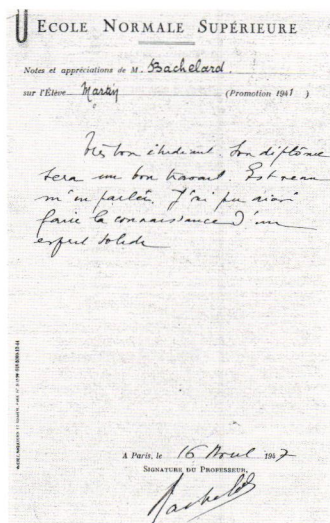 ECOLE NORMALE SUPÉRIEURE
Notes et appréciations de M. Bachelard.
sur l'Élève Martin (Promotion 1941 )
Très bon étudiant. Son diplôme
sera un bon travail. Est venu
m'en parler. J'ai pu ainsi
faire la connaissance d'un
esprit solide
A Paris, le 16 Avril 1947
SIGNATURE DU PROFESSEUR,
Bachelard